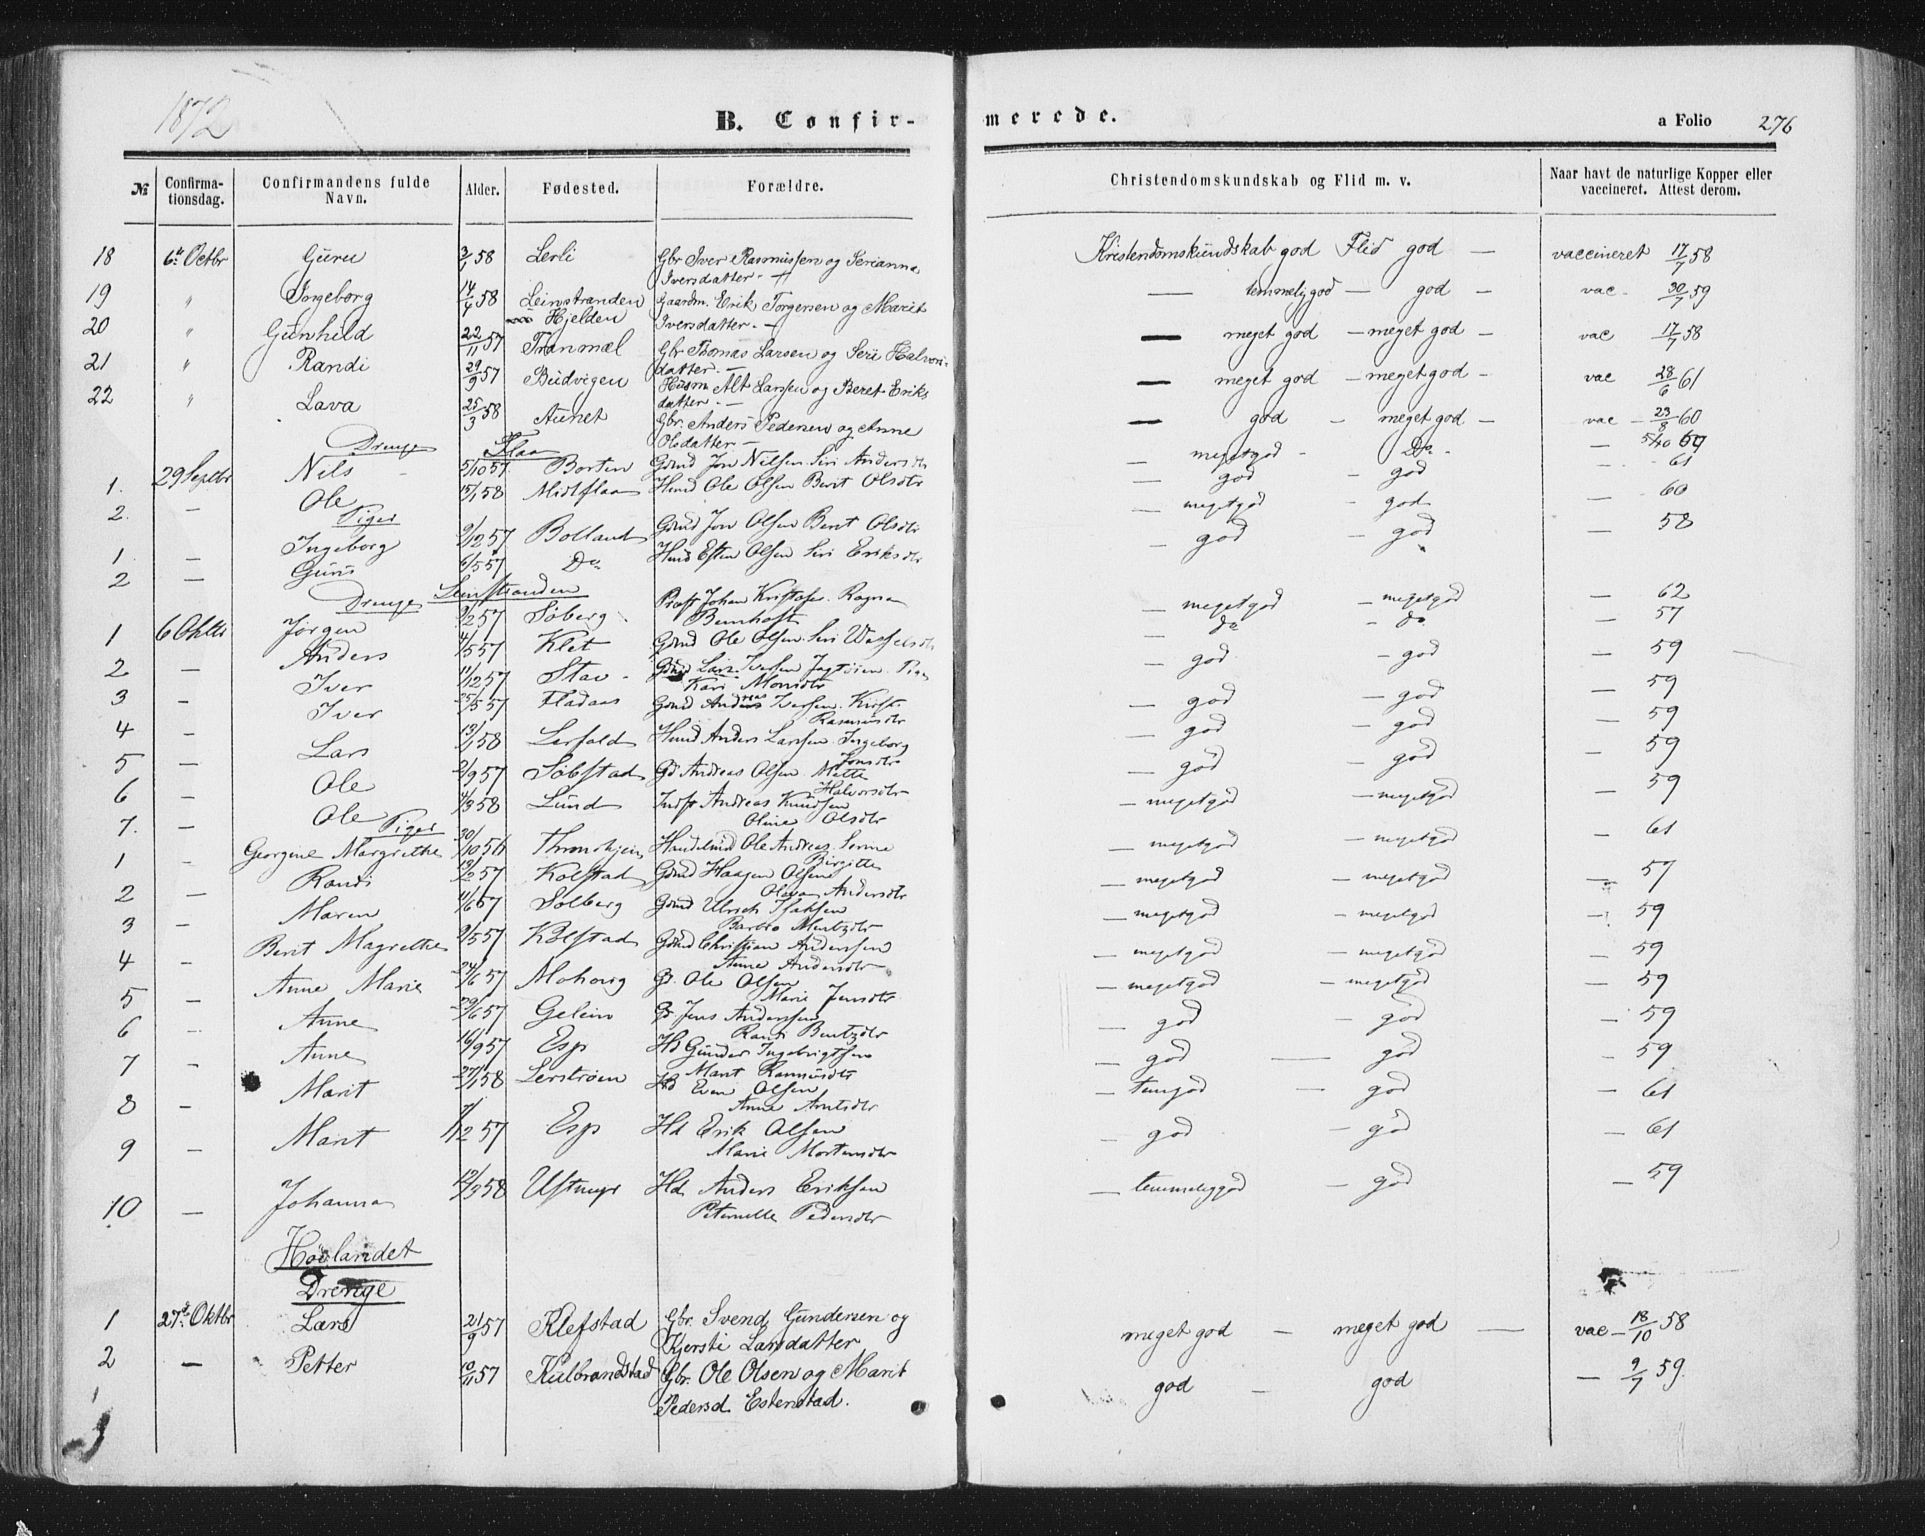 1872
B. Confirmerede.
a Folio 276
№ Confirmationsdag. Confirmandens fulde Navn. Alder. Fødested. Forældre. Christendomskundskab og Flid m. v. Naar havt de naturlige Kopper eller vaccineret. Attest derom.
18 6te Octbr Guru 3/1 58 Lerli Gbr Iver Rasmussen og Serianna Iversdatter. Kristendomskundskab god Flid god — vaccineret 17/7 58
19 " Ingeborg 14/4 58 Leinstranden Hjelden Gaardm. Erik Torgersen og Marit Iversdatter. — temmelig god — god — vac. 30/7 59
20 " Gunhild 22/11 57 Tranmæl Gbr Thomas Larsen og Seri Halvorsdatter. — meget god — meget god — vac 17/7 58
21 " Randi 29/9 57 Budvigen Husm. Alt Larssen og Beret Eriksdatter. — meget god — meget god — vac 28/6 61
22 " Lava 25/3 58 Aunet Gbr. Anders Pedersen og Anne Olsdatter — god — meget god — vac — 23/8 60
Drenge Flaa
1. 29 Septbr Nils 5/10 57 Borten Gdmd Jon Nilsen Siri Andersdtr — megetgod — Do
2. — Ole 15/1 58 Midtflaa Hmd Ole Olsen Berit Olsdtr — god — god — 61
Piger
1 — Ingeborg 9/12 57 Bolland Gdmd Jon Olsen Berit Olsdtr — megetgod — god — 60
2 — Guru 6/5 57 Do Hmd Esten Olsen Siri Eriksdtr — god — god — 58
Drenge Leinstranden
1 6 Oktbr Jørgen 9/2 57 Søberg Præst Johan Kristofer. Ragna Bernhoft — megetgod — megetgod — 62
2 — Anders 4/5 57 Klet Gdmd Ole Olsen. Siri Wasselsdtr — do — do. — 57
3 — Iver 11/12 57 Stav Lars Iversen Kari Monsdtr — god — god — 59
4 — Iver 25/5 57 Fladaas Gdmd Andreas Iversen. Kirsti Rasmusdtr — god — god — 59
5 — Lars 13/1 58 Lerfald Hmd Anders Larssen. Ingeborg Jonsdtr — god — god — 59
6 — Ole 2/9 57 Sobstad Gd Andreas Olsen. Mette Halvorsdtr — god — god — 59
7. — Ole 4/3 58 Lund Indst Andreas Knudsen Oline Olsdtr — megetgod — megetgod — 59
Piger
1 — Georgine Margrethe 30/10 56 Thronhjem Handelsmd Ole Andreas. Serine Birgitte — megetgod — megetgod — 61
2 — Randi 13/2 57 Kolstad Gdmd Haagen Olsen Olava Andersdtr — megetgod — megetgod — 57
3 — Maren 11/6 57 Solberg Gdmd Ulrich Isaksen Barbro Mentzdtr — megetgod — megetgod — 59
4 — Berit Magrethe 9/5 57 Kolstad Gdmd Christian Anderssen Anne Andersdtr — megetgod — megetgod — 59
5 — Anne Marie 24/6 57 Mohoug Gd. Ole Olsen Marie Jensdtr — megetgod — megetgod — 59
6 — Anne 29/6 57 Gelein Gd Jens Anderssen Randi Bentzdtr — god — god — 59
7 — Anne 16/9 57 Esp Hd Gunder Ingebrigtsen Marit Rasmusdtr — god — god — 59
8 — Marit 27/1 58 Lerstrøen Hd Even Olsen Anne Arntsdtr — temgod — god — 61
9 — Marit 7/12 57 Esp Hd Erik Olsen Marie Mortensdtr — god — god — 61
10 — Johanna 12/3 58 Ustmyr Hd Anders Eriksen Peternelle Pedersdtr — temmeliggod — god — 59
Høilandet
Drenge
1 27de Oktbr Lars 21/9 57 Klefstad Gbr. Svend Gundersen og Kjersti Larsdatter meget god — meget god — vac — 18/10 58
2 — Petter 10/11 57 Kulbrandstad Gbr. Ole Olsen og Marit Pedersd. Estenstad. god — god — 9/7 59.